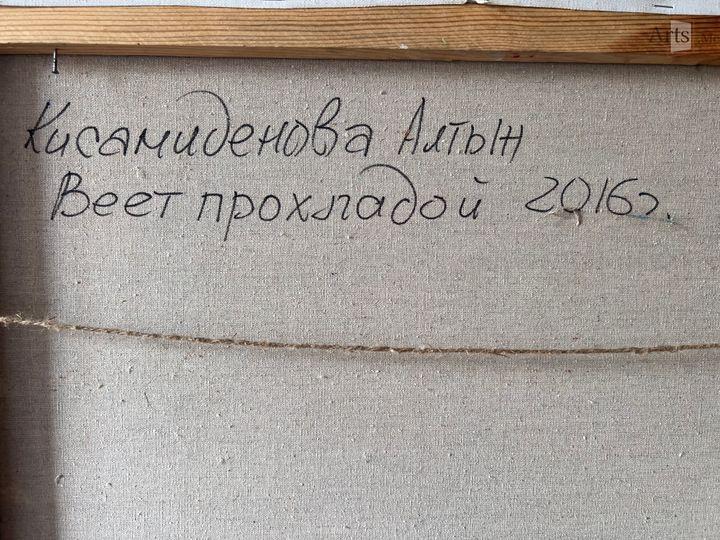 Arts
Кисамиденова Алтын
Веет прохладой 2016г.